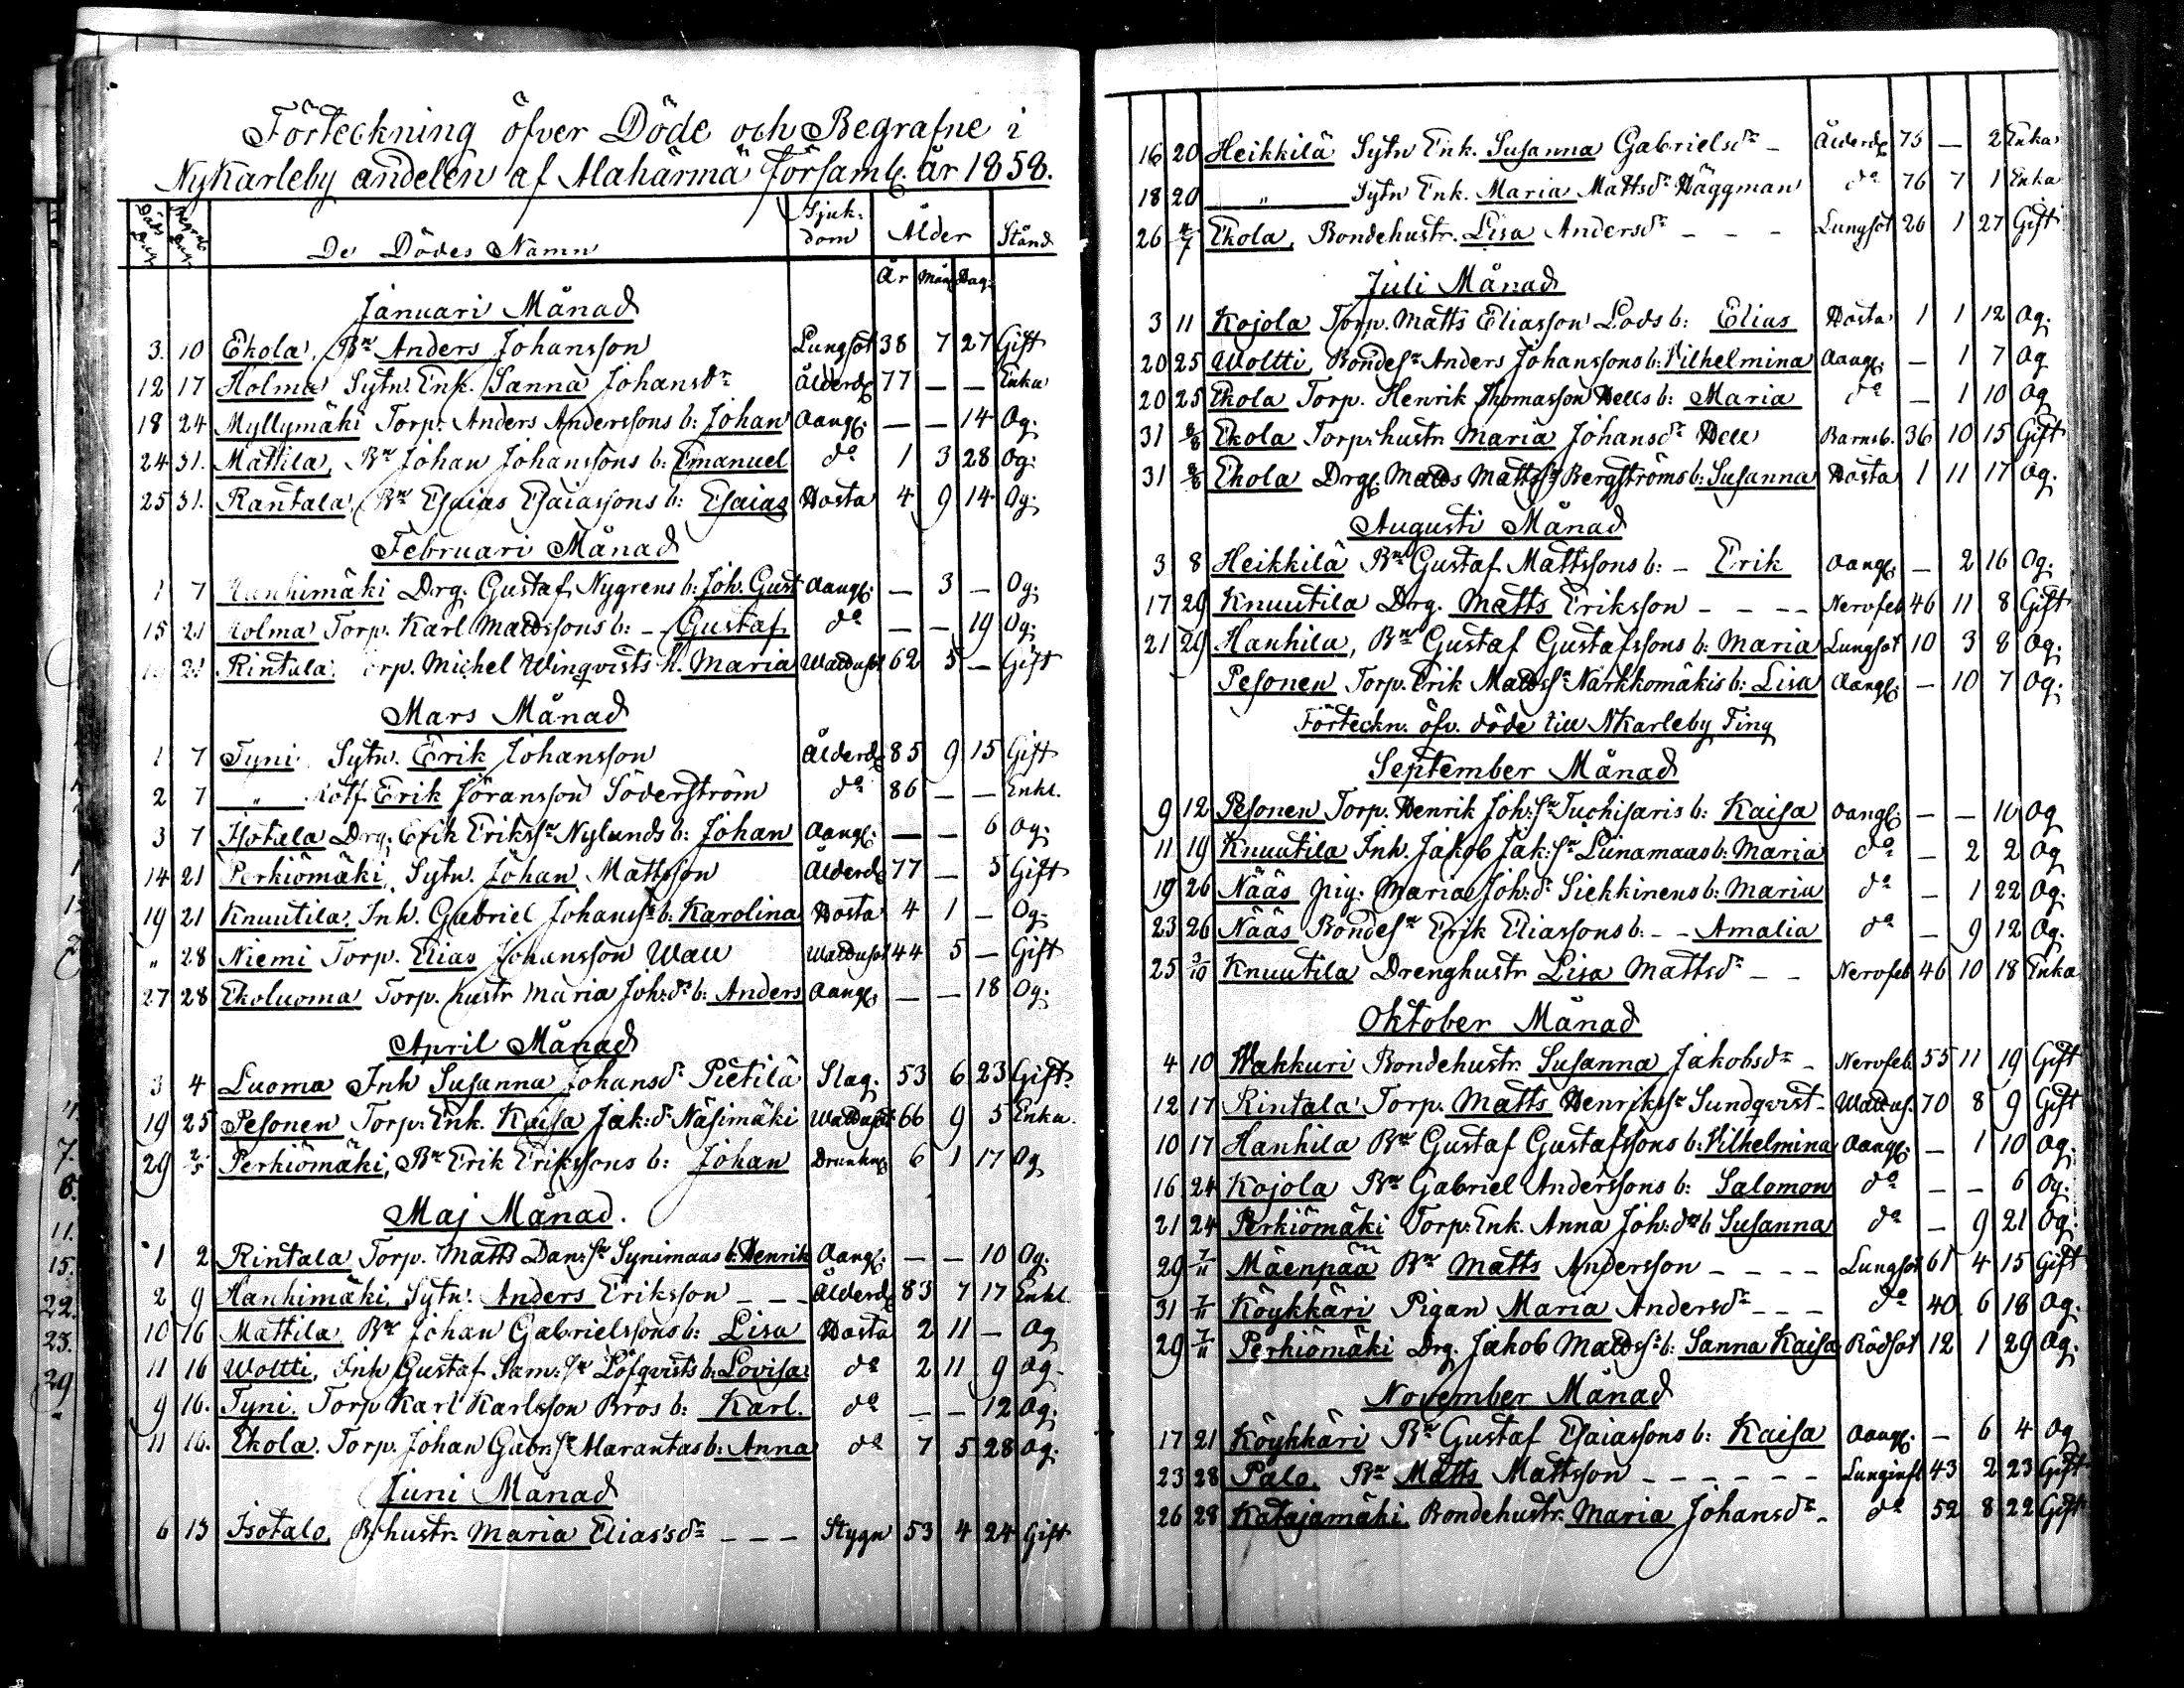 Förteckning öfver Döde och Begrafne i
Nykarleby andelen af Alahärmä församl. år 1858.
Döds Dag Begraf. Dag De Dödes Namn Sjuk-dom Ålder Stånd
År Mån Dag:
Januari Månad
3. 10 Ekola, Bn Anders Johansson Lungsot 38 7 27 Gift
12 17 Holma Sytn. Enk. Sanna Johansdr Ålderd 77 — — Enka
18 24 Myllymäki Torp. Anders Anderssons b: Johan Oangf. — — 14 Og.
24 31. Mattila, Bn Johan Johanssons b: Emanuel do 1 3 28 Og:
25 31. Rantala, Bn Esaias Esaiassons b: Esaias Hosta 4 9 14 Og:
Februari Månad
1 7 Hanhimäki Drg. Gustaf Nygrens b: Joh. Gust Oangf. — 3 — Og:
15 21 Holma Torp. Karl Mattssons b: - Gustaf do — — 19 Og:
21 Rintala. Torp. Michel Winqvists h. Maria Wattusot 62 5 — Gift
Mars Månad
1 7 Tyni Sytn. Erik Johansson Ålderd 85 9 15 Gift
2 7 " Rotf. Erik Jöransson Söderström do 86 — — Enkl.
3 7 Isotalo Drg. Erik Erikssn Nylunds b: Johan Oangf. — — 6 Og:
14 21 Perkiömäki, Sytn. Johan Mattsson Ålderd 77 — 5 Gift
19 21 Knuutila. Inh. Gabriel Johanssn b: Karolina Hosta 4 1 — Og:
" 28 Niemi Torp. Elias Johansson Wall Wattusot 44 5 — Gift
27 28 Ekoluoma Torp. hustr Maria Joh:dr b: Anders Oangf. — — 18 Og:
April Månad
3 4 Luoma Inh Susanna Johansdr Pietilä Slag. 53 6 23 Gift.
19 25 Pesonen Torp. Enk. Kaisa Jak:dr Näsimäki Wattusot 66 9 5 Enka.
29 2/5 Perkiömäki, Bn Erik Erikssons b: Johan Drunkn 6 1 17 Og
Maj Månad.
1 2 Rintala Torp. Matts Dan:sn Synimaas b: Henrik Oangf. — — 10 Og:
2 9 Hanhimäki, Sytn. Anders Eriksson - - - Ålderd 83 7 17 Enkl
10 16 Mattila Bn Johan Gabrielssons b: Lisa Hosta 2 11 — Og
11 16 Woltti, Inh Gustaf Sam:sn Löfqvists b: Lovisa: do 2 11 9 Og-
9 16. Tyni. Torp Karl Karlsson Bros b: Karl. do — — 12 Og:
11 16. Ekola. Torp. Johan Gabr:sn Marantas b: Anna do 7 5 28 Og:
Juni Månad
6 13 Isotalo, B:hustr. Maria Eliassdr - - - Stygn 53 4 24 Gift
16 20 Heikkilä Sytn Enk. Susanna Gabrielsdr - Ålderd 75 — 2 Enka
18 20 " Sytn Enk. Maria Mattsdr Häggman do 76 7 1 Enka
26 4/7 Ekola, Bondehustr. Lisa Andersdr - - - Lungsot 26 1 27 Gift
Juli Månad
3 11 Kojola Torp. Matts Eliasson Lods b: Elias Hosta 1 1 12 Og.
20 25 Woltti, Bondesn Anders Johanssons b: Vilhelmina Oangf. — 1 7 Og
20 25 Ekola Torp. Henrik Thomasson Hells b: Maria do — 1 10 Og
31 8/8 Ekola Torp: hustr. Maria Johansdr Hell Barnsb. 36 10 15 Gift
31 8/8 Ekola Drg. Matts Mattssn Bergströms b: Susanna Hosta 1 11 17 Og.
Augusti Månad
3 8 Heikkilä Bn Gustaf Mattssons b: - Erik Oangf. — 2 16 Og.
17 29 Knuutila Drg. Matts Eriksson - - - Nervfeb 46 11 8 Gift
21 29 Hanhila, Bn Gustaf Gustafssons b: Maria Lungsot 10 3 8 Og.
Pesonen Torp. Erik Mattssn Narkkomäkis b: Lisa Oangf. — 10 7 Og:
Förteckn. öfv. döde till NKarleby Ting
September Månad
9 12 Pesonen Torp. Henrik Joh:sn Tuchisaris b: Kaisa Oangf. — — 10 Og
11 19 Knuutila Inh. Jakob Jak:sn Liinamaas b: Maria do — 2 2 Og
19 26 Nääs pig. Maria Joh:dr Siekkinens b: Maria do — 1 22 Og.
23 26 Nääs Bondesn Erik Eliassons b: - - Amalia do — 9 12 Og.
25 3/10 Knuutila Drenghustr Lisa Mattsdr - - Nervfeb 46 10 18 Enka
Oktober Månad
4 10 Wakkuri Bondehustr. Susanna Jakobsdr - Nervfeb 55 11 19 Gift
12 17 Rintala Torp. Matts Henrikssn Sundqvist - Wattus. 70 8 9 Gift
10 17 Hanhila Bn Gustaf Gustafssons b: Vilhelmina Oangf. — 1 10 Og.
16 24 Kojola Bn Gabriel Anderssons b: Salomon do — — 6 Og:
21 24 Perkiömäki Torp: Enk. Anna Joh:dr b Susanna do — 9 21 Og:
29 7/11 Mäenpää Bn Matts Andersson - - - - Lungsot 61 4 15 Gift
31 7/11 Köykkäri Pigan Maria Andersdr - - - do 40 6 18 Og.
29 7/11 Perkiömäki Drg. Jakob Mattss: b: Sanna Kaisa Rödsot 12 1 29 Og.
November Månad
17 21 Köykkäri Bn Gustaf Esaiassons b: Kaisa Oangf. — 6 4 Og
23 28 Palo. Bn Matts Mattsson - - - - - - Lunginfl 43 2 23 Gift
26 28 Katajamäki Bondehustr. Maria Johansdr - do 52 8 22 Gift